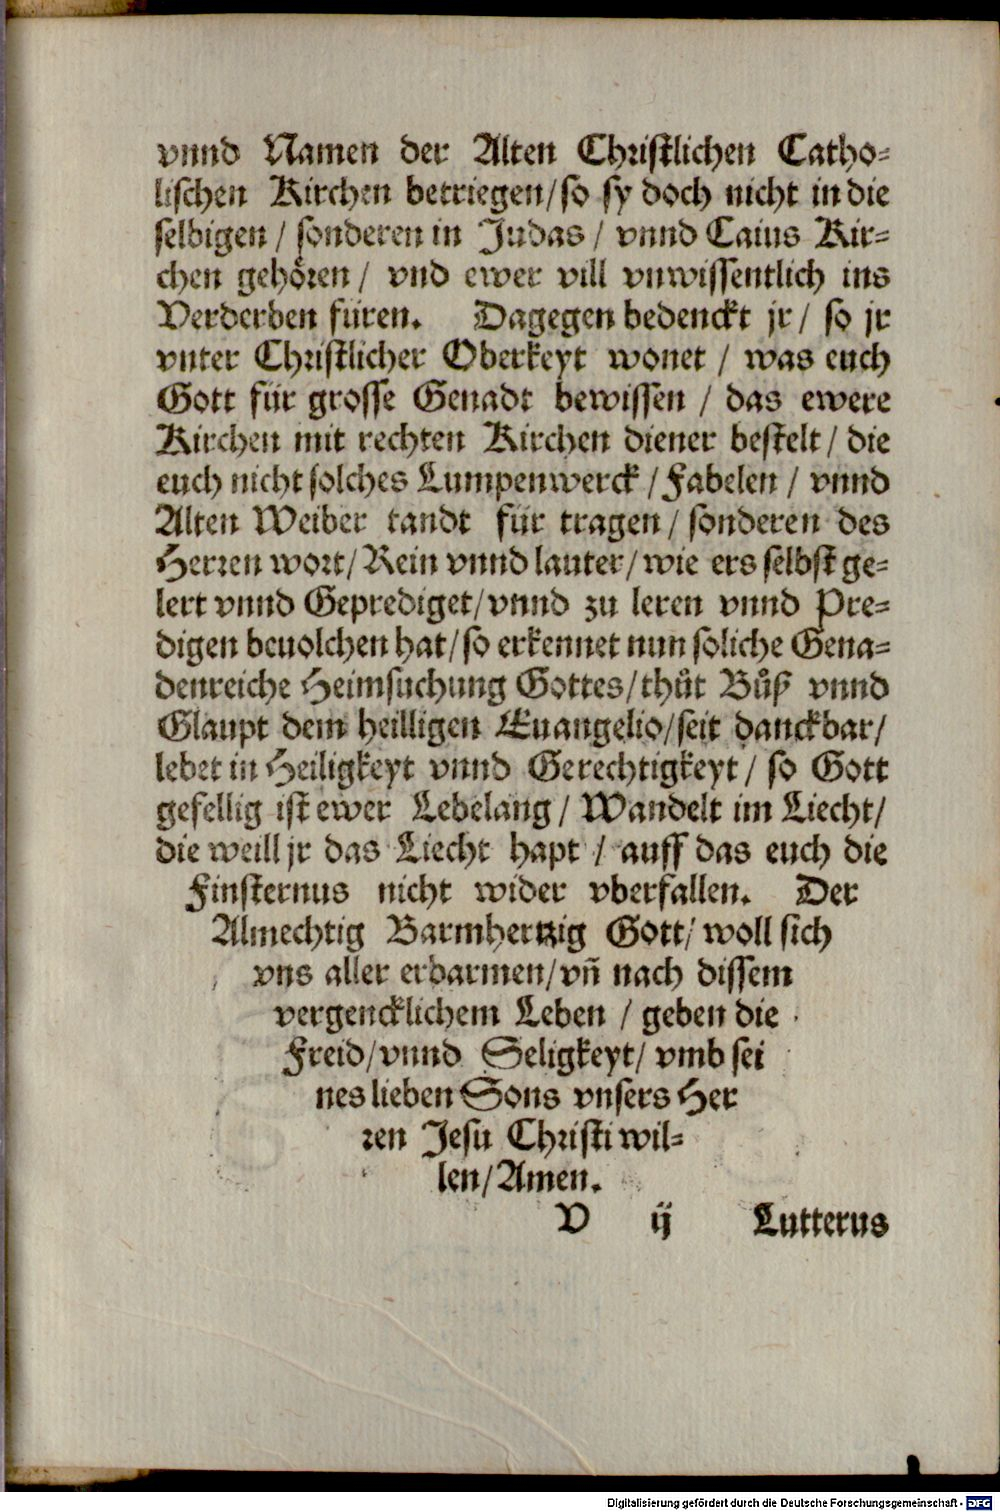 vnnd Namen der Alten Christlichen Catho⸗
lischen Kirchen betriegen/so sy doch nicht in die
selbigen / sonderen in Judas / vnnd Cains Kir⸗
chen gehören / vnd ewer vill vnwissentlich ins
Verderben füren. Dagegen bedenckt jr / so jr
vnter Christlicher Oberkeyt wonet / was euch
Gott für grosse Genadt bewissen / das ewere
Kirchen mit rechten Kirchen diener bestelt / die
euch nicht solches Lumpenwerck / Fabelen / vnnd
Alten Weiber tandt für tragen / sonderen des
Herren wort/ Rein vnnd lauter/ wie ers selbst ge⸗
lert vnnd Geprediget/ vnnd zu leren vnnd Pre⸗
digen beuolchen hat/ so erkennet nun soliche Gena⸗
denreiche Heimsuchung Gottes/ thůt Bůß vnnd
Glaupt dem heilligen Euangelio/ seit danckbar/
lebet in Heiligkeyt vnnd Gerechtigkeyt / so Gott
gefellig ist ewer Lebelang / Wandelt im Liecht/
die weill jr das Liecht hapt / auff das euch die
Finsternus nicht wider vberfallen. Der
Almechtig Barmhertzig Gott/ woll sich
vns aller erbarmen/ vn̄ nach dissem
vergencklichem Leben / geben die
Freid/ vnnd Seligkeyt/ vmb sei
nes lieben Sons vnsers Her
ren Jesu Christi wil⸗
len/ Amen.
V ij Lutterus
Digitalisierung gefördert durch die Deutsche Forschungsgemeinschaft - DFG